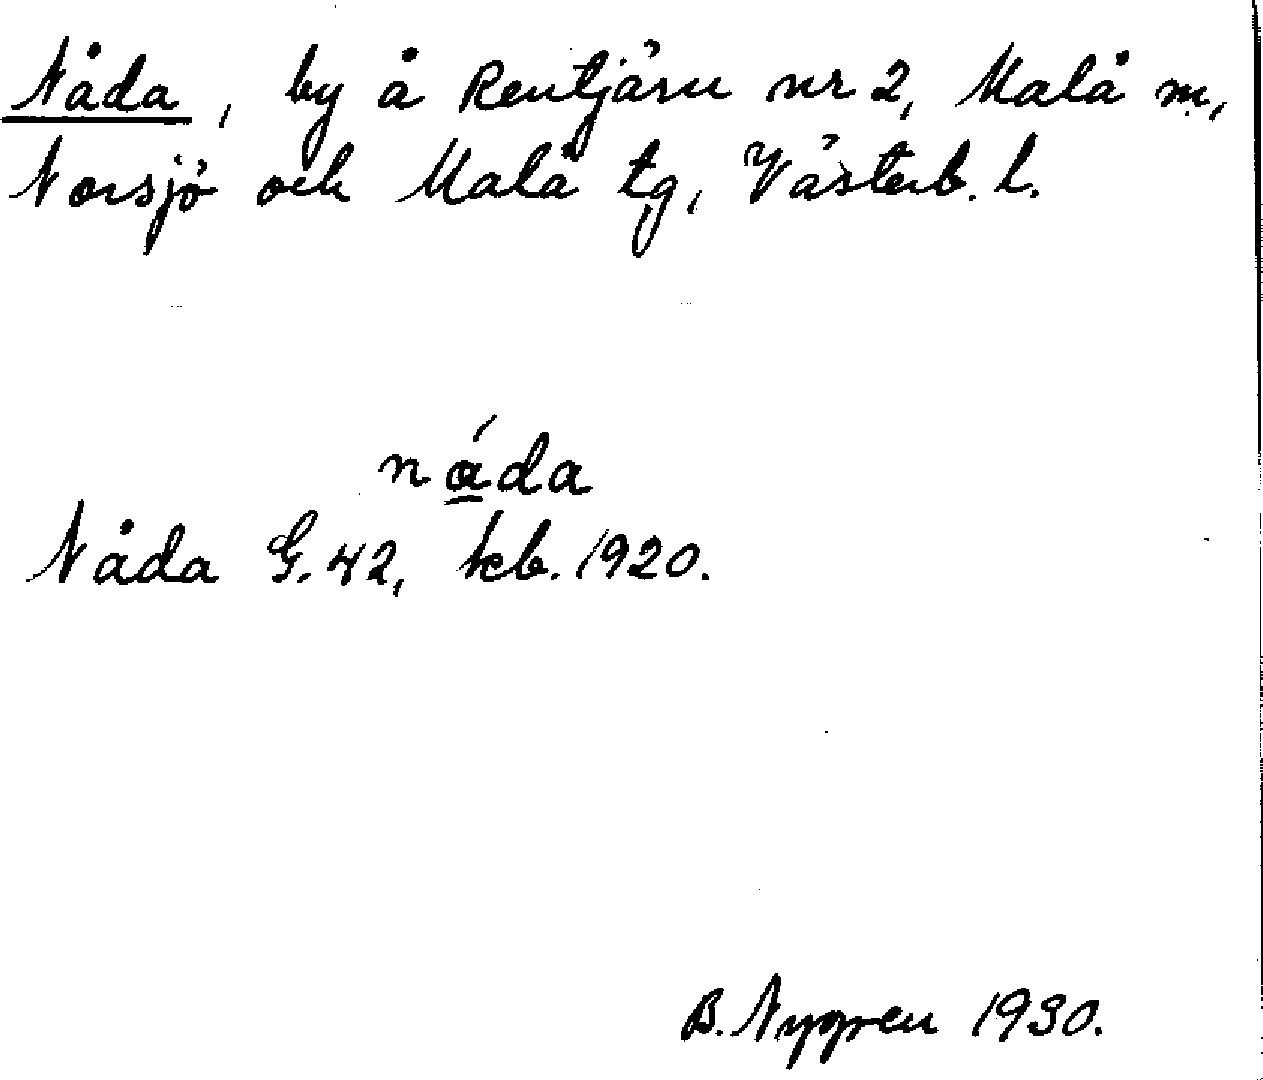 Nåda, by å Rentjärn nr 2, Malå m,
Norsjö och Malå tg, Västerb. l.
náda
Nåda G. 42, kb. 1920.
B. Nygren 1930.